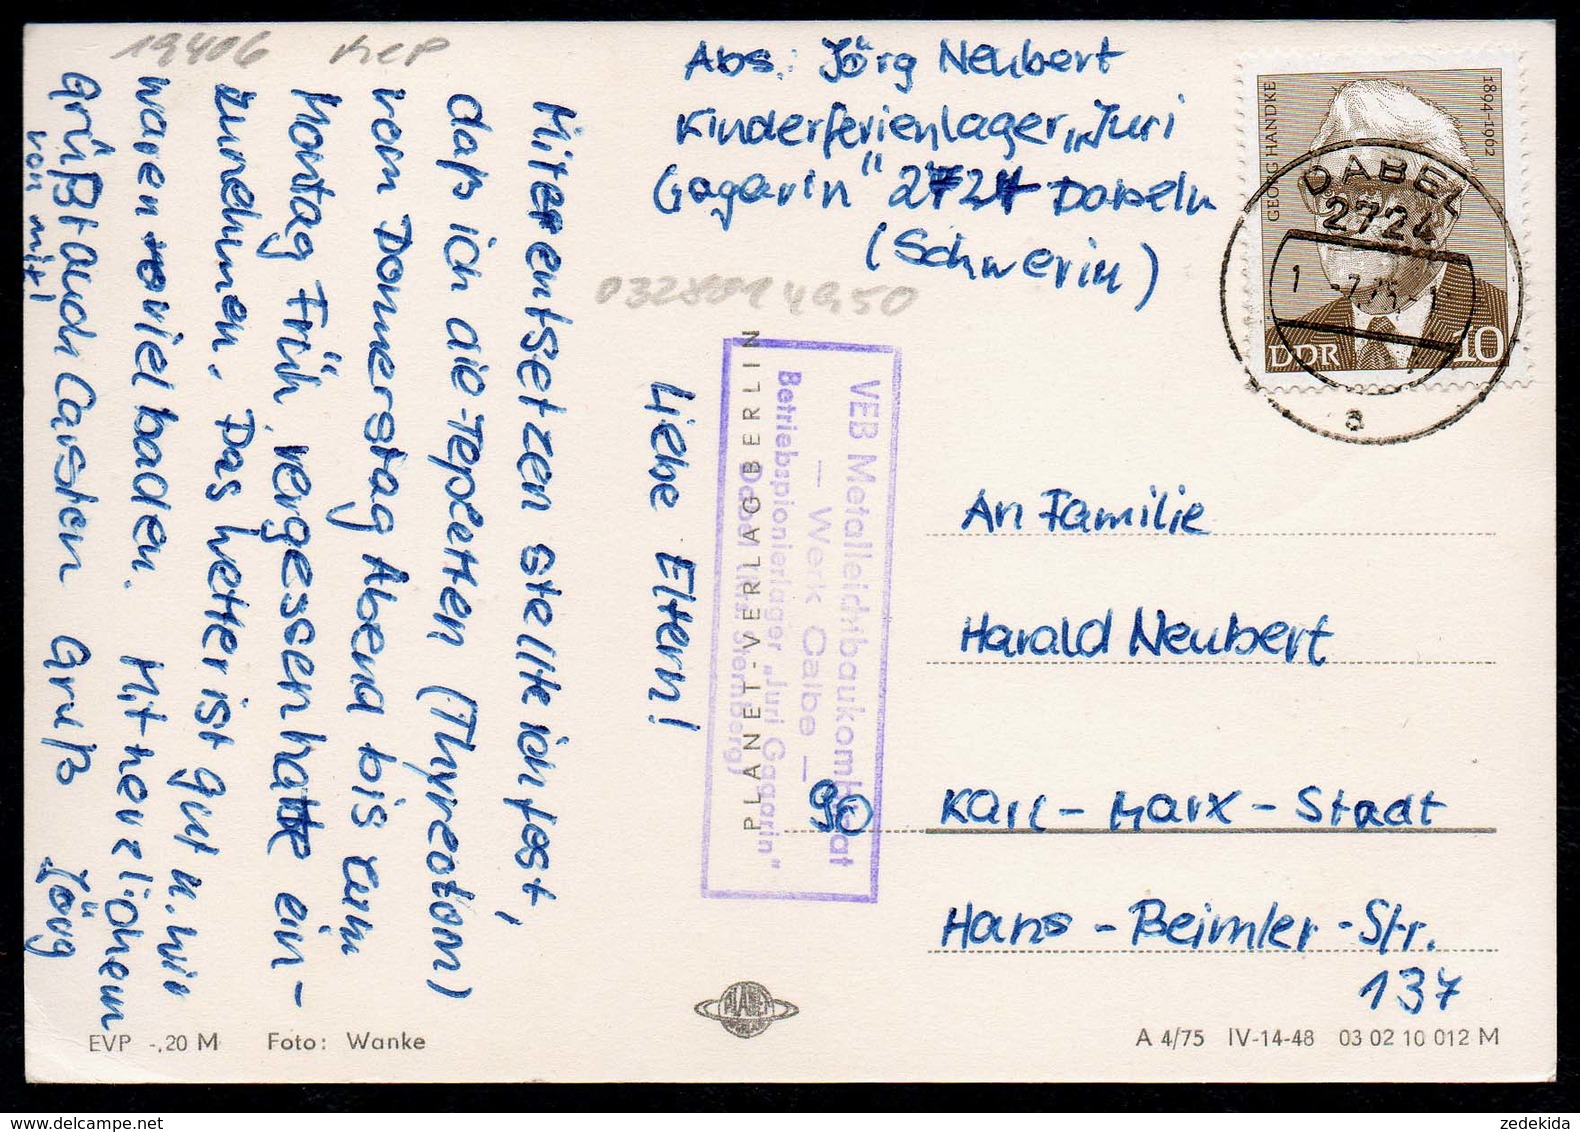 19406
Abs.: Jörg Neubert
Kinderferienlager „Juri
Gagarin" 2724 Dabeln
(Schwerin)
GEORG HANDKE
1894-1962
DDR 10
DABEL
2724
a
4950
Liebe Eltern!
Mit entsetzen stellte ich fest,
daß ich die Tepletten (Thyreotom)
vom Donnerstag Abend bis zum
Montag Früh, vergessen hatte ein-
zunehmen. Das Wetter ist gut u. wir
waren viel baden. Mit herzlichem
Gruß Jörg
Grüßt auch Carsten
von mir!
VEB Metalleichtbaukombinat
— Werk Calbe —
Betriebspionierlager „Juri Gagarin"
Dabel (Krs. Sternberg)
PLANET-VERLAG BERLIN
An Familie
Harald Neubert
90 Karl-Marx-Stadt
Hans-Beimler-Str.
137
PLANET
EVP -,20 M Foto: Wanke
A 4/75 IV-14-48 03 02 10 012 M
zedekida